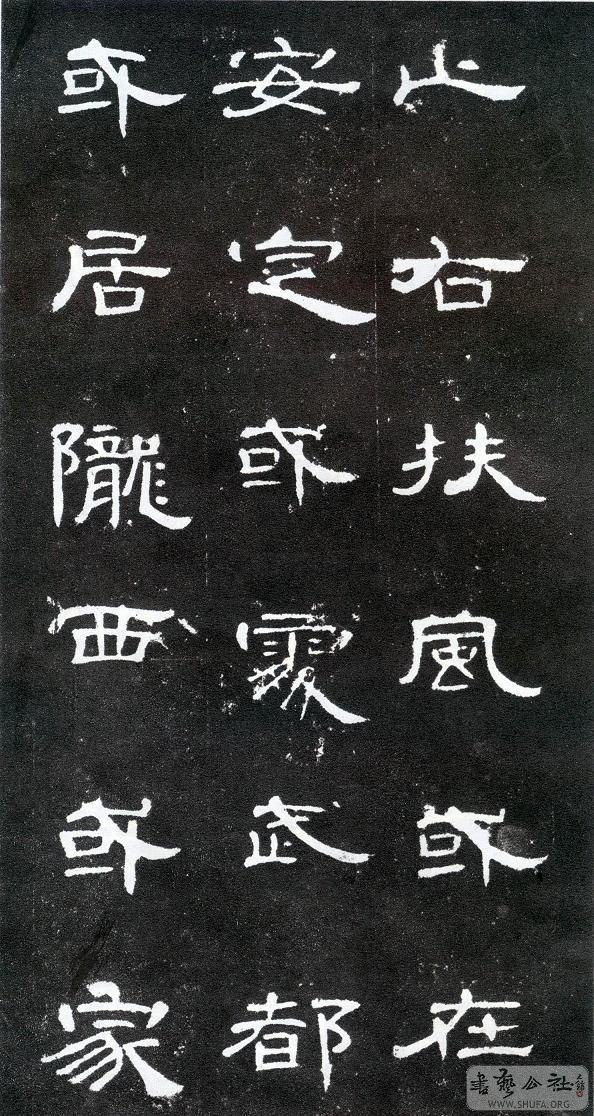 止右扶風或在
安定或處武都
或居隴西或家
書藝公社
WWW.SHUFA.ORG